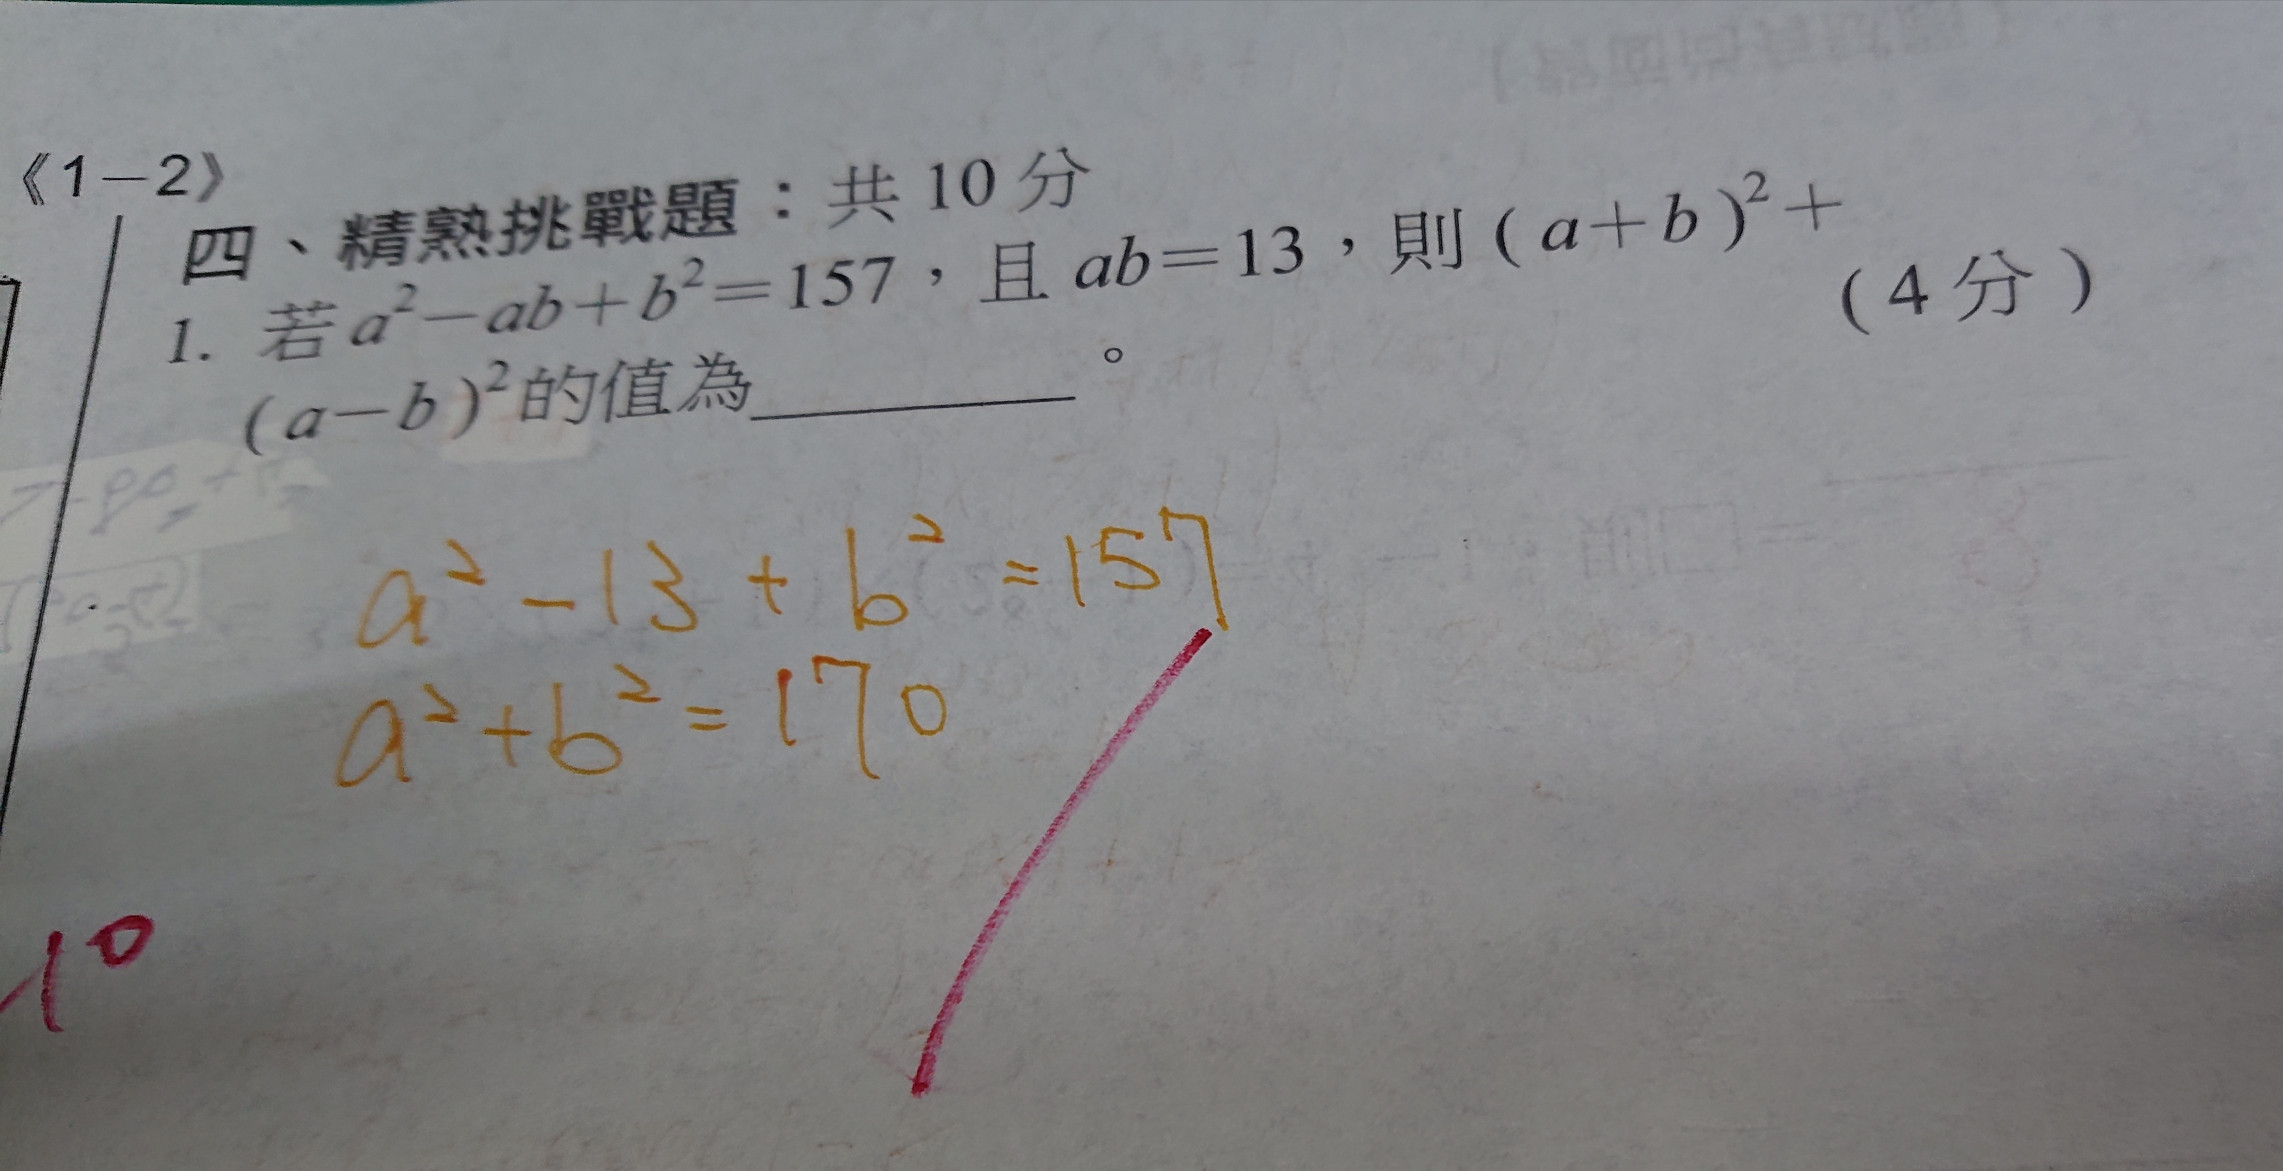 《1－2》
四、精熟挑戰題：共 10 分
1. 若 a²－ab＋b²＝157，且 ab＝13，則（a＋b）²＋
（a－b）²的值為________。
（4 分）
a² - 13 + b² = 157
a² + b² = 170
10